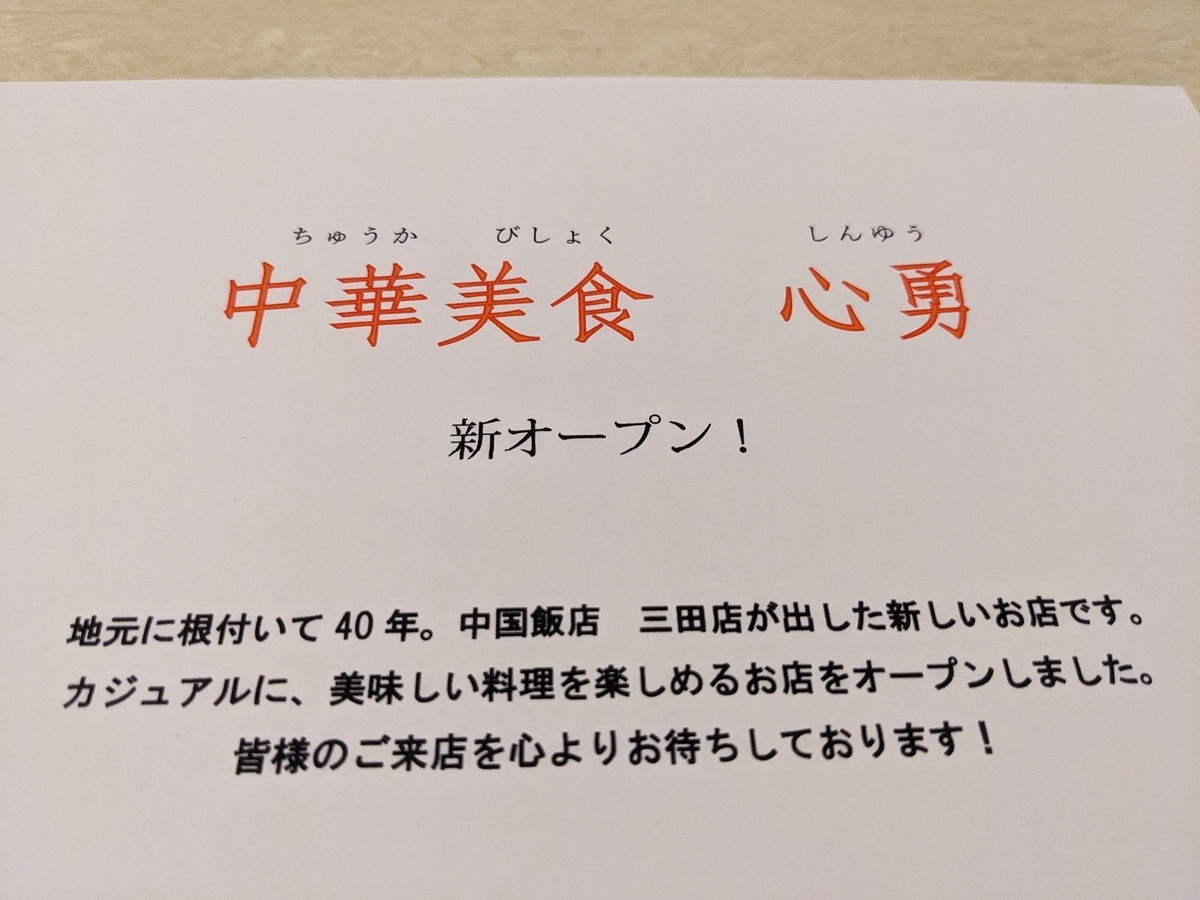 ちゅうか びしょく しんゆう
中華美食 心勇
新オープン！
地元に根付いて 40 年。中国飯店 三田店が出した新しいお店です。
カジュアルに、美味しい料理を楽しめるお店をオープンしました。
皆様のご来店を心よりお待ちしております！